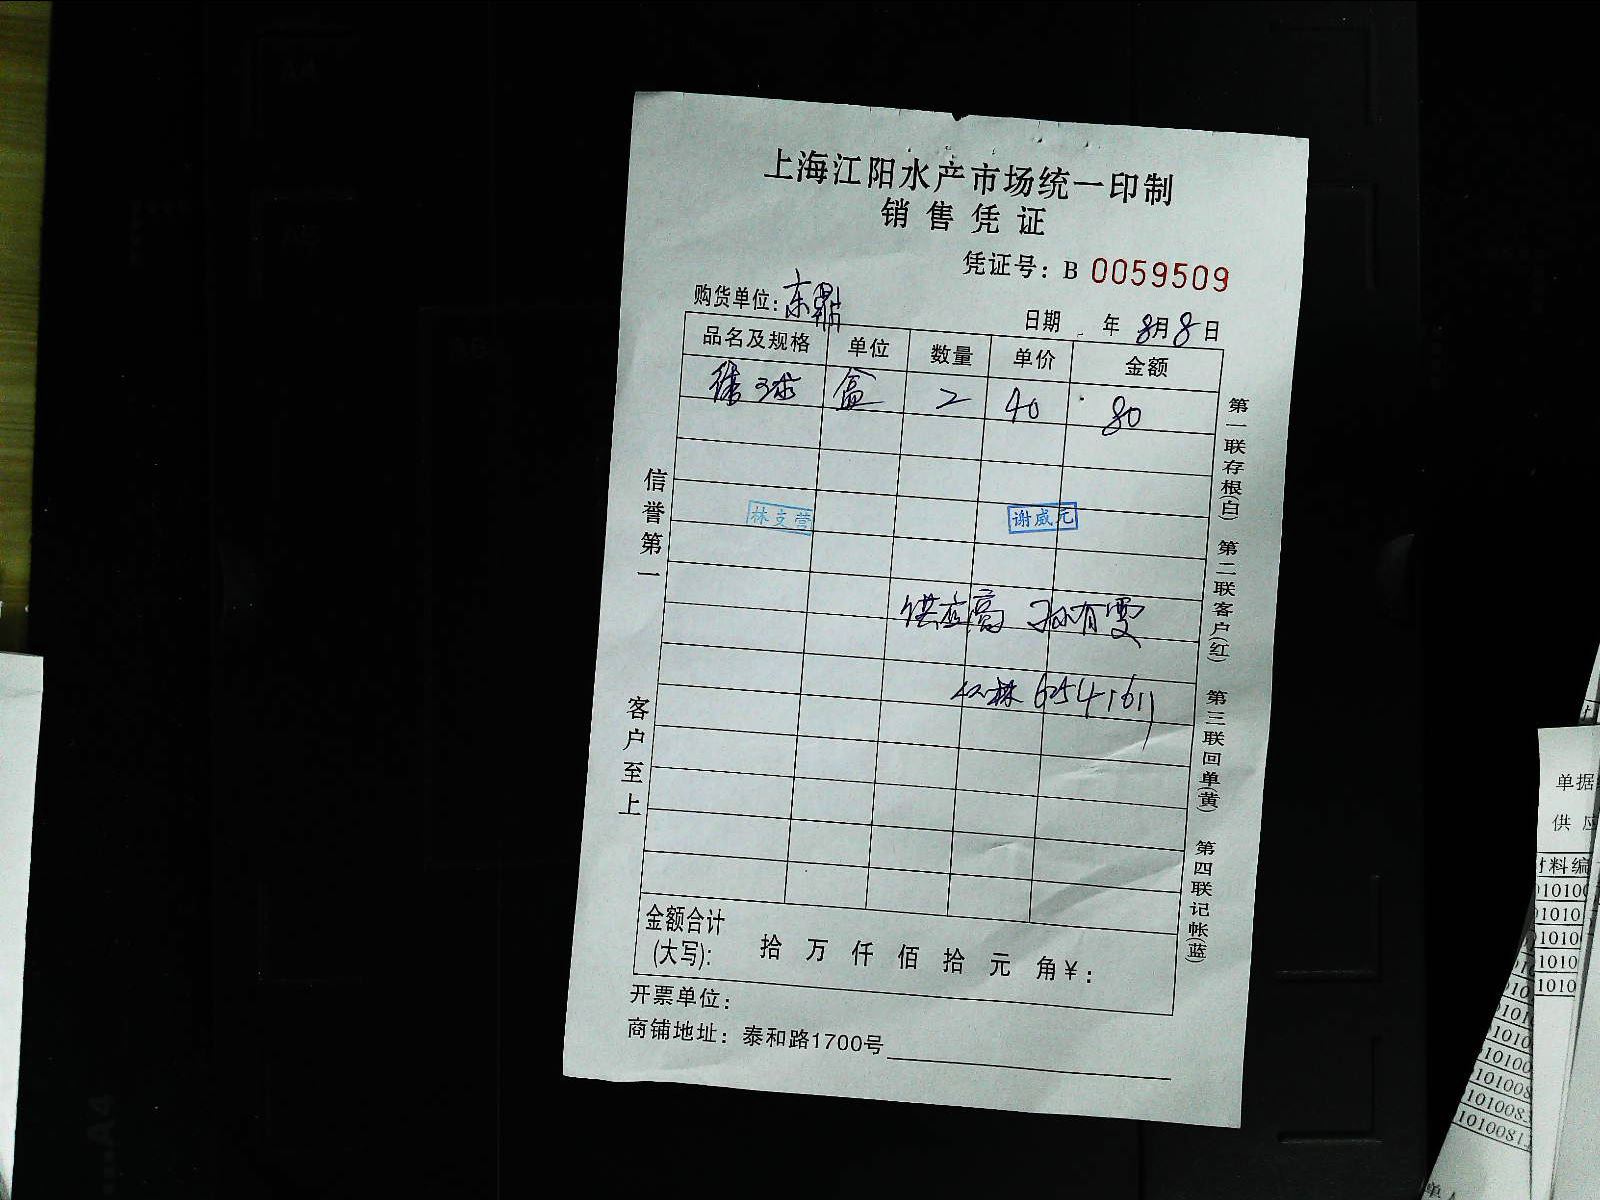 上海江阳水产市场统一印制
销售凭证
凭证号：B 0059509
购货单位：东鼎
日期 年 8月8日
品名及规格 单位 数量 单价 金额
球 盒 2 40 80
林文营 谢威元
供应商 孙有雯
6254161
信誉第一
客户至上
第一联存根(白) 第二联客户(红) 第三联回单(黄) 第四联记帐(蓝)
金额合计
(大写)： 拾 万 仟 佰 拾 元 角 ¥：
开票单位：
商铺地址：泰和路1700号
单据
供应
材料编
101008